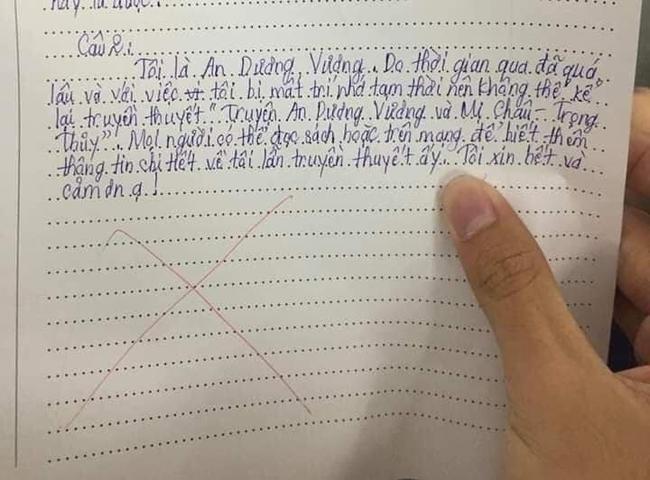 này là được.
Câu 2:
Tôi là An Dương Vương. Do thời gian qua đã quá
lâu và với việc tôi bị mất trí nhớ tạm thời nên không thể kể
lại truyền thuyết "Truyện An Dương Vương và Mị Châu - Trọng
Thủy". Mọi người có thể đọc sách hoặc trên mạng để biết thêm
thông tin chi tiết về tôi lẫn truyền thuyết ấy. Tôi xin hết và
cảm ơn ạ!